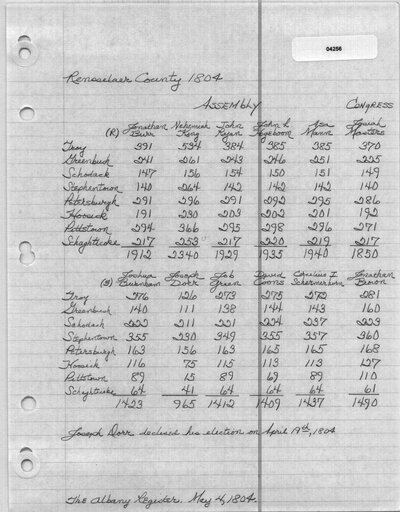 04256
Rensselaer County 1804
Assembly Congress
Jonathan Nehemiah John John L Asa Josiah
(R) Burr King Ryan Hogeboom Mann Masters
Troy 391 534 384 385 385 370
Greenbush 241 261 243 246 251 225
Schodack 147 156 154 150 151 149
Stephentown 140 264 142 142 142 140
Petersburgh 291 296 291 292 295 286
Hoosick 191 230 203 202 201 192
Pittstown 294 366 295 298 296 271
Schaghticoke 217 253 217 220 219 217
1912 2340 1929 1935 1940 1850
Joshua Joseph Job David Cornelius I Jonathan
Burnham Dorr Green Coons Schermerhorn Brown
Troy 276 126 273 275 272 281
Greenbush 140 111 138 144 143 160
Schodack 222 211 221 224 237 223
Stephentown 355 230 349 355 357 360
Petersburgh 163 156 163 165 165 168
Hoosick 116 75 115 113 113 127
Pittstown 89 15 89 69 89 110
Schaghticoke 64 41 64 64 64 61
1423 965 1412 1409 1437 1490
Joseph Dorr declined his election on April 19th, 1804.
The Albany Register. May 4, 1804.